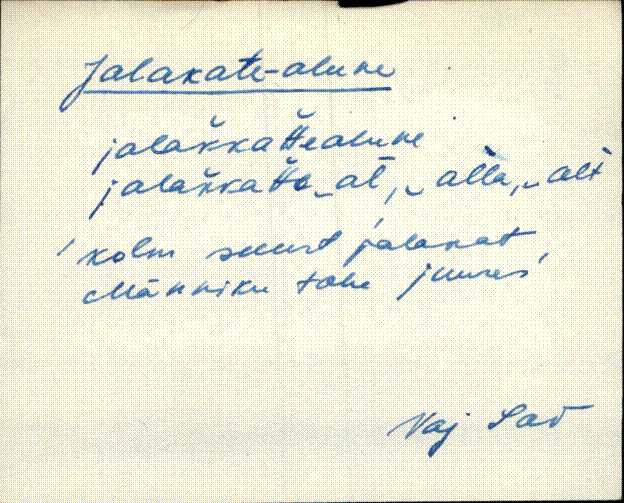 Jalakate-alune
jalak̆kat̆t̆ealune
jalak̆kat̆t̆e‿al̄, ‿alla, ‿alt
'kolm suurt jalakat
Männiku tohe juures'
Vaj Sad